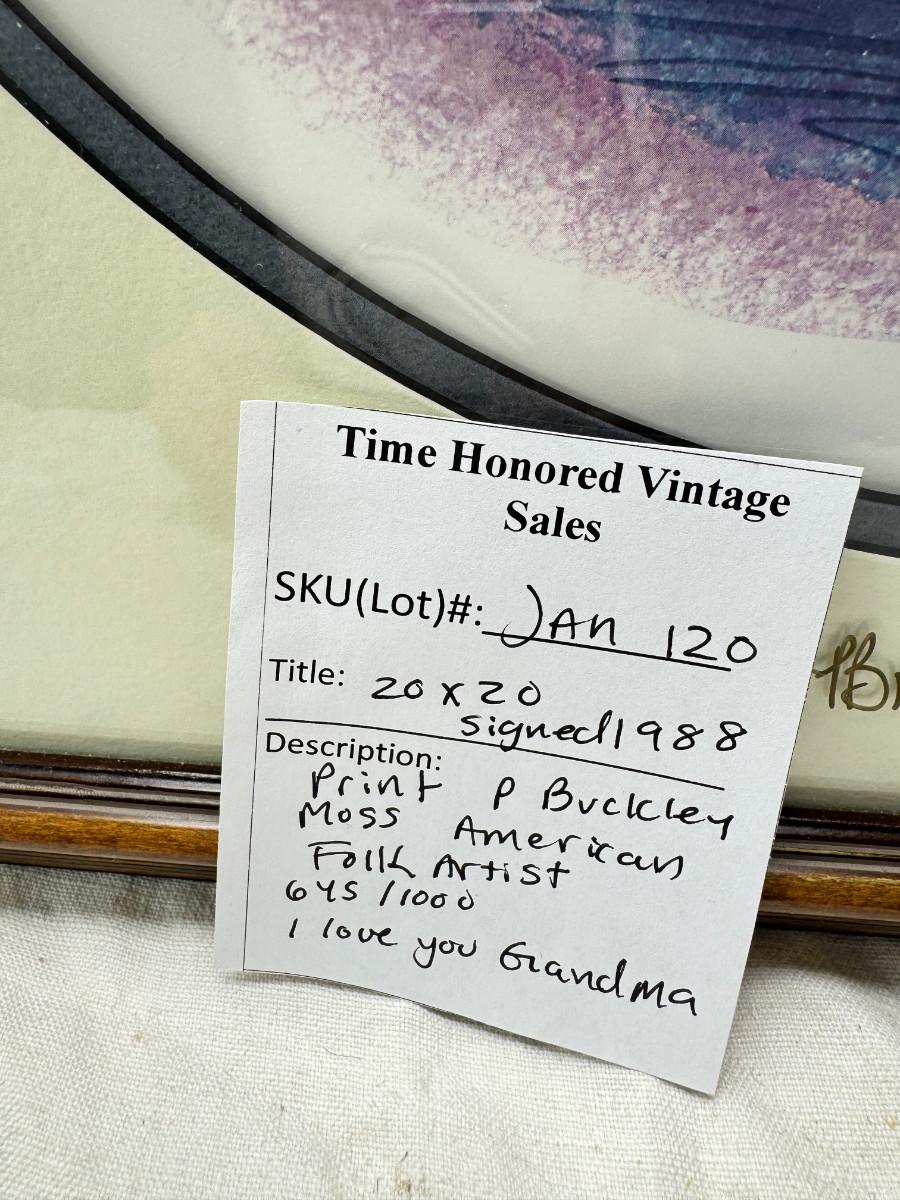 Time Honored Vintage
Sales
SKU(Lot)#: JAN 120
Title: 20 x 20
signed 1988
Description:
Print P Buckley
Moss American
Folk Artist
645 /1000
I love you Grandma